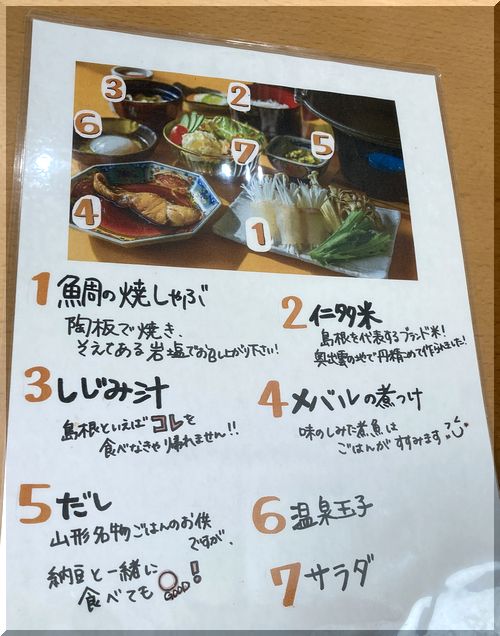 3
2
6
7
5
4
1
1 鯛の焼しゃぶ
陶板で焼き、
そえてある岩塩でお召し上がり下さい！
2 仁多米
島根を代表するブランド米！
奥出雲の地で丹精こめて作られました！
3 しじみ汁
島根といえばコレを
食べなきゃ帰れません！！
4 メバルの煮つけ
味のしみた煮魚は
ごはんがすすみます
5 だし
山形名物ごはんのお供
ですが、
納豆と一緒に
食べても◯！
GOOD
6 温泉玉子
7 サラダ